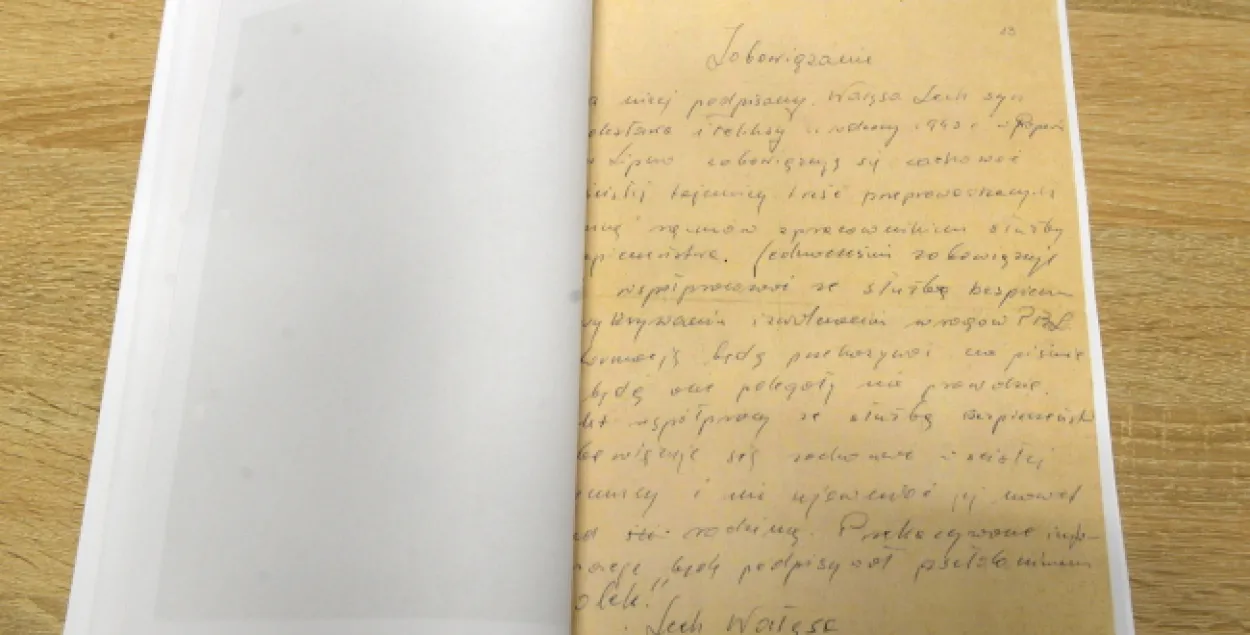 13
Zobowiązanie
a niżej podpisany Wałęsa Lech syn
olesława i Feliksy urodzony 1943 r w Popow
w Lipno zobowiązuję się zachować
ścisłej tajemnicy treść przeprowadzonych
mną rozmów z pracownikiem służby
zpieczeństwa. Jednocześnie zobowiązuje
współpracować ze służbą bezpiecz
wykrywaniu i zwalczaniu wrogów PRL
formacją będę przekazywać na piśmie
będą one polegały na prawdzie.
akt współpracy ze służbą Bezpieczeńst
bowiązuje się zachować w ścisłej
jemnicy i nie ujawniać jej nawet
ed rodziną. Przekazywane info-
macje będę podpisywał pseudonimem
olek."
Lech Wałęsa